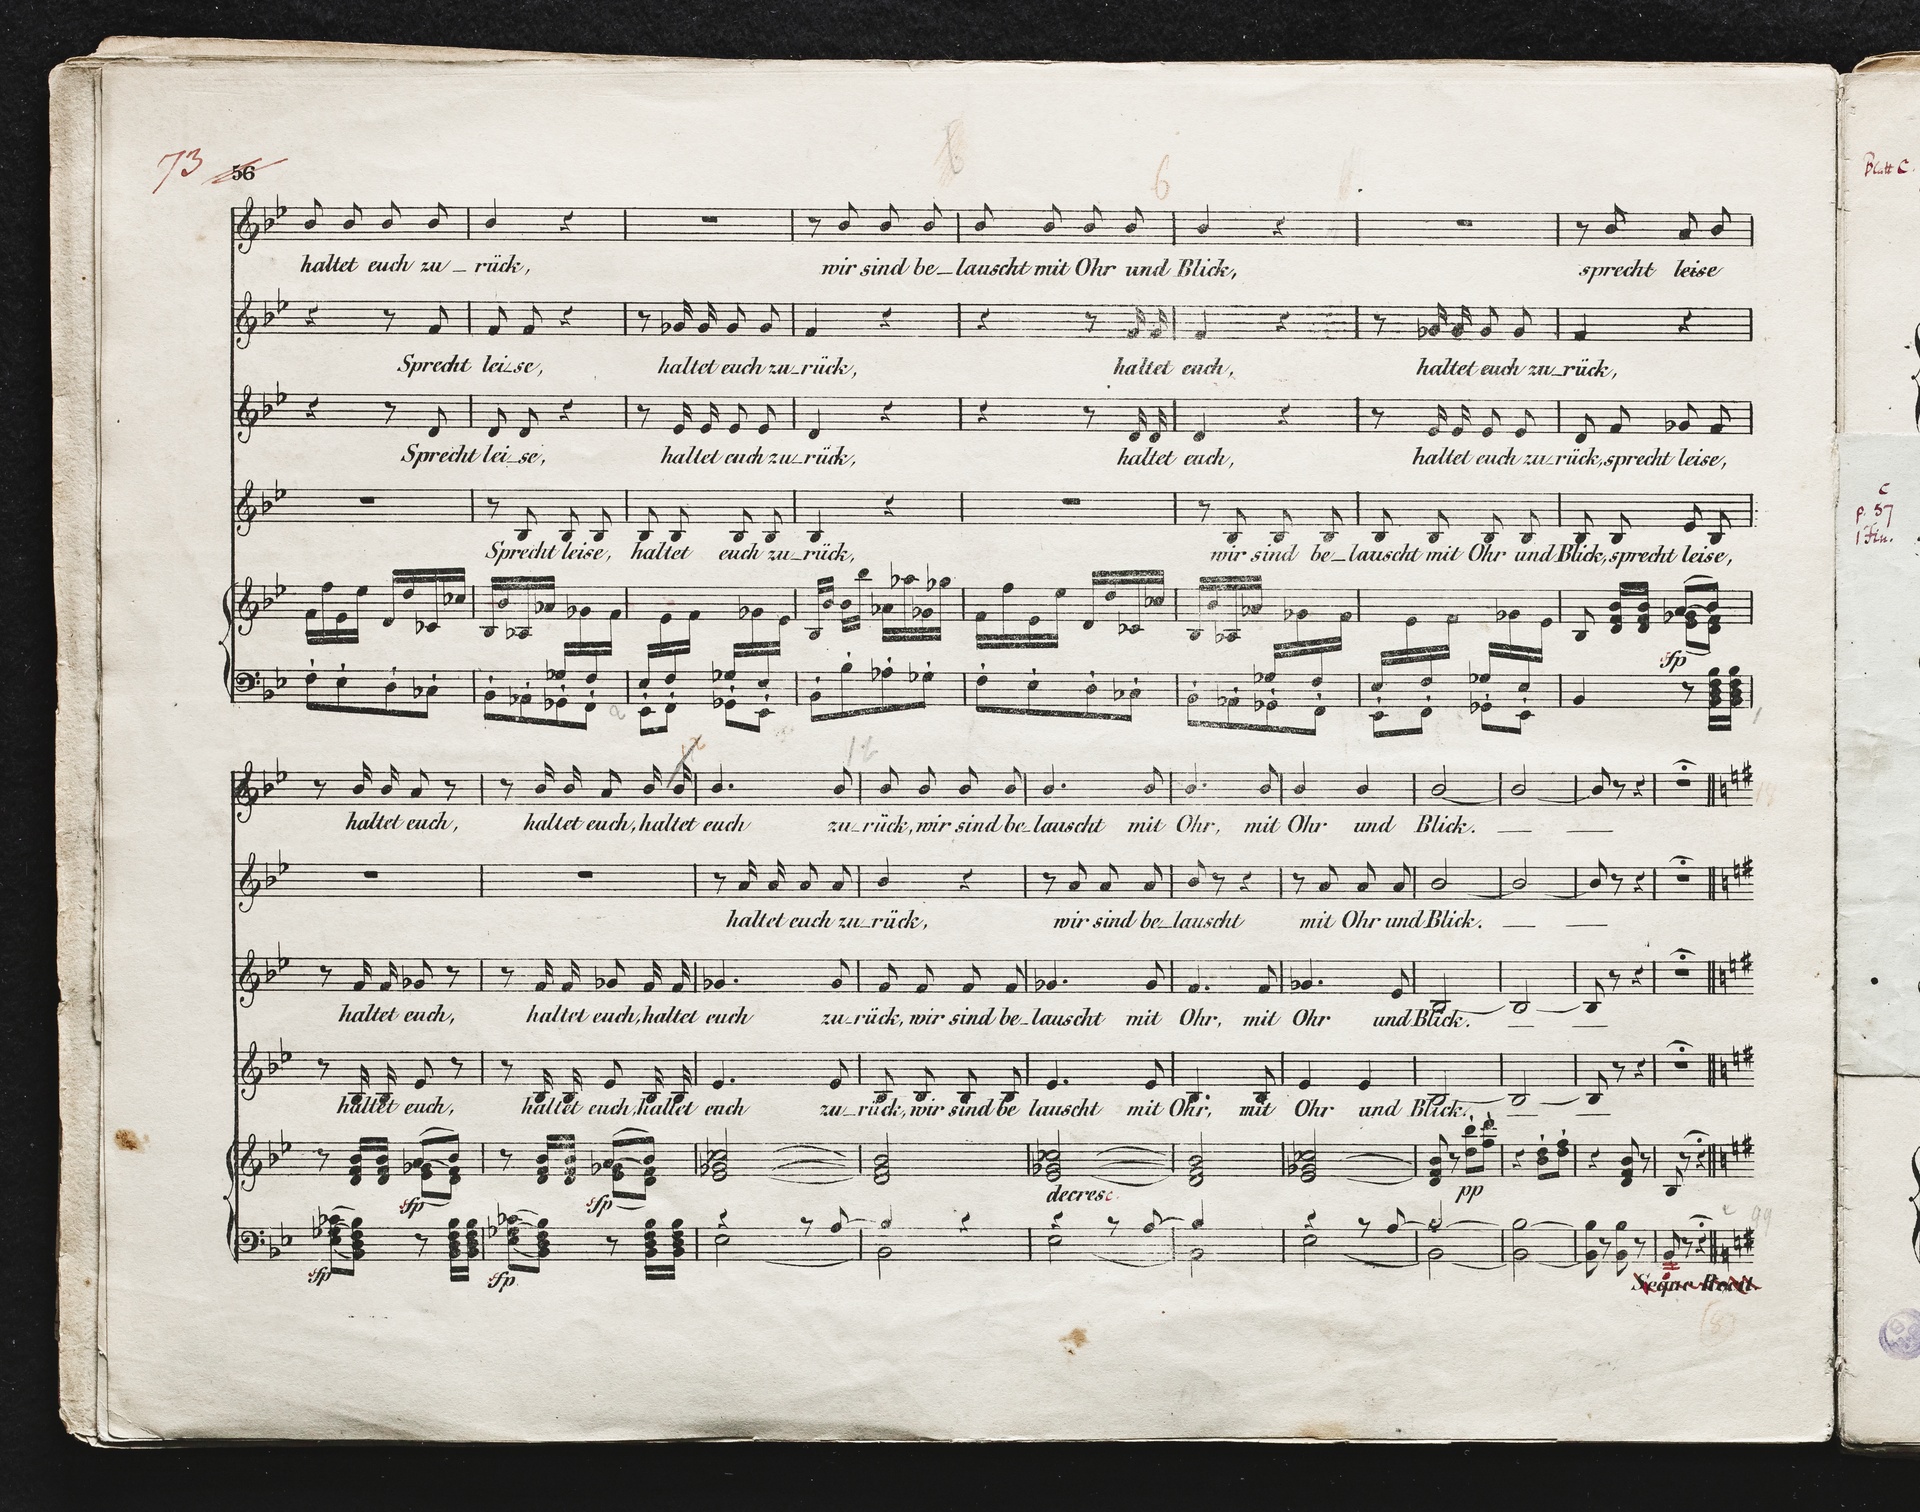 73 56
6
haltet euch zu_rück, wir sind be_lauscht mit Ohr und Blick, sprecht leise
Sprecht lei_se, haltet euch zu_rück, haltet euch, haltet euch zu_rück,
Sprecht lei_se, haltet euch zu_rück, haltet euch, haltet euch zu_rück, sprecht leise,
Sprecht leise, haltet euch zu_rück, wir sind be_lauscht mit Ohr und Blick, sprecht leise,
fp
haltet euch, haltet euch, haltet euch zu_rück, wir sind be_lauscht mit Ohr, mit Ohr und Blick.
haltet euch zu_rück, wir sind be_lauscht mit Ohr und Blick.
haltet euch, haltet euch, haltet euch zu_rück, wir sind be_lauscht mit Ohr, mit Ohr und Blick.
haltet euch, haltet euch, haltet euch zu_rück, wir sind be lauscht mit Ohr, mit Ohr und Blick.
fp fp decresc. pp
fp fp
Segue Recit.
(8)
Blatt C.
C
p. 57